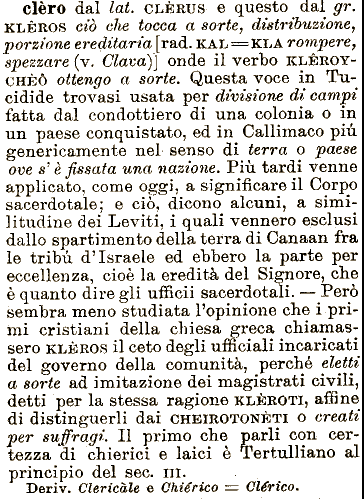 clèro dal lat. CLÈRUS e questo dal gr.
KLÊROS ciò che tocca a sorte, distribuzione,
porzione ereditaria [rad. KAL=KLA rompere,
spezzare (v. Clava)] onde il verbo KLÊROY-
CHÈÔ ottengo a sorte. Questa voce in Tu-
cidide trovasi usata per divisione di campi
fatta dal condottiero di una colonia o in
un paese conquistato, ed in Callimaco piú
genericamente nel senso di terra o paese
ove s'è fissata una nazione. Piú tardi venne
applicato, come oggi, a significare il Corpo
sacerdotale; e ciò, dicono alcuni, a simi-
litudine dei Leviti, i quali vennero esclusi
dallo spartimento della terra di Canaan fra
le tribú d'Israele ed ebbero la parte per
eccellenza, cioè la eredità del Signore, che
è quanto dire gli ufficii sacerdotali. — Però
sembra meno studiata l'opinione che i pri-
mi cristiani della chiesa greca chiamas-
sero KLÊROS il ceto degli ufficiali incaricati
del governo della comunità, perché eletti
a sorte ad imitazione dei magistrati civili,
detti per la stessa ragione KLÊROTI, affine
di distinguerli dai CHEIROTONÈTI o creati
per suffragi. Il primo che parli con cer-
tezza di chierici e laici è Tertulliano al
principio del sec. III.
Deriv. Clericàle e Chiérico = Clérico.